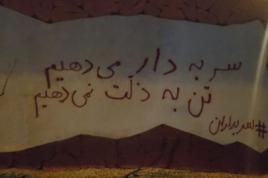 سر به دار می‌دهیم
تن به ذلت نمی‌دهیم
#سربداران